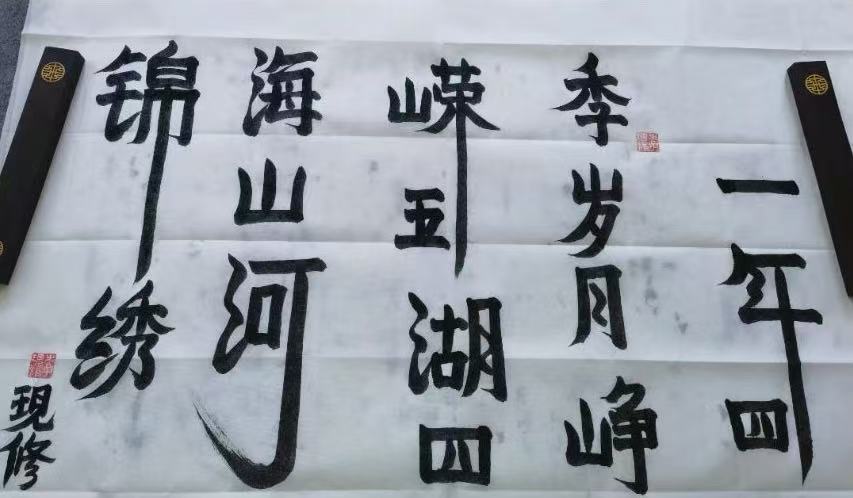 一年四
季岁月峥
嵘五湖四
海山河
锦绣
现修